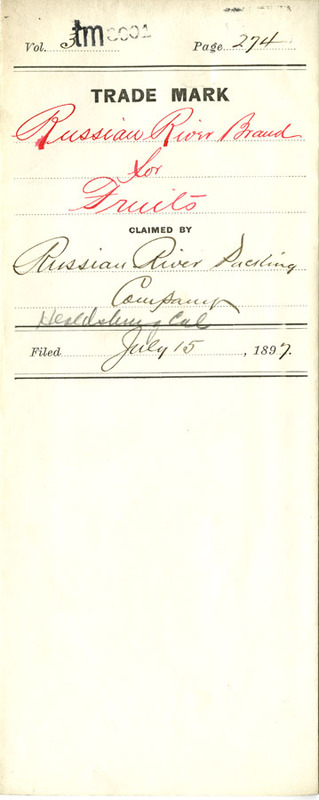 Vol. 3 tm Page 274
TRADE MARK
Russian River Brand
for
Fruits
CLAIMED BY
Russian River Packing
Company
Healdsburg Cal
Filed July 15, 1897.